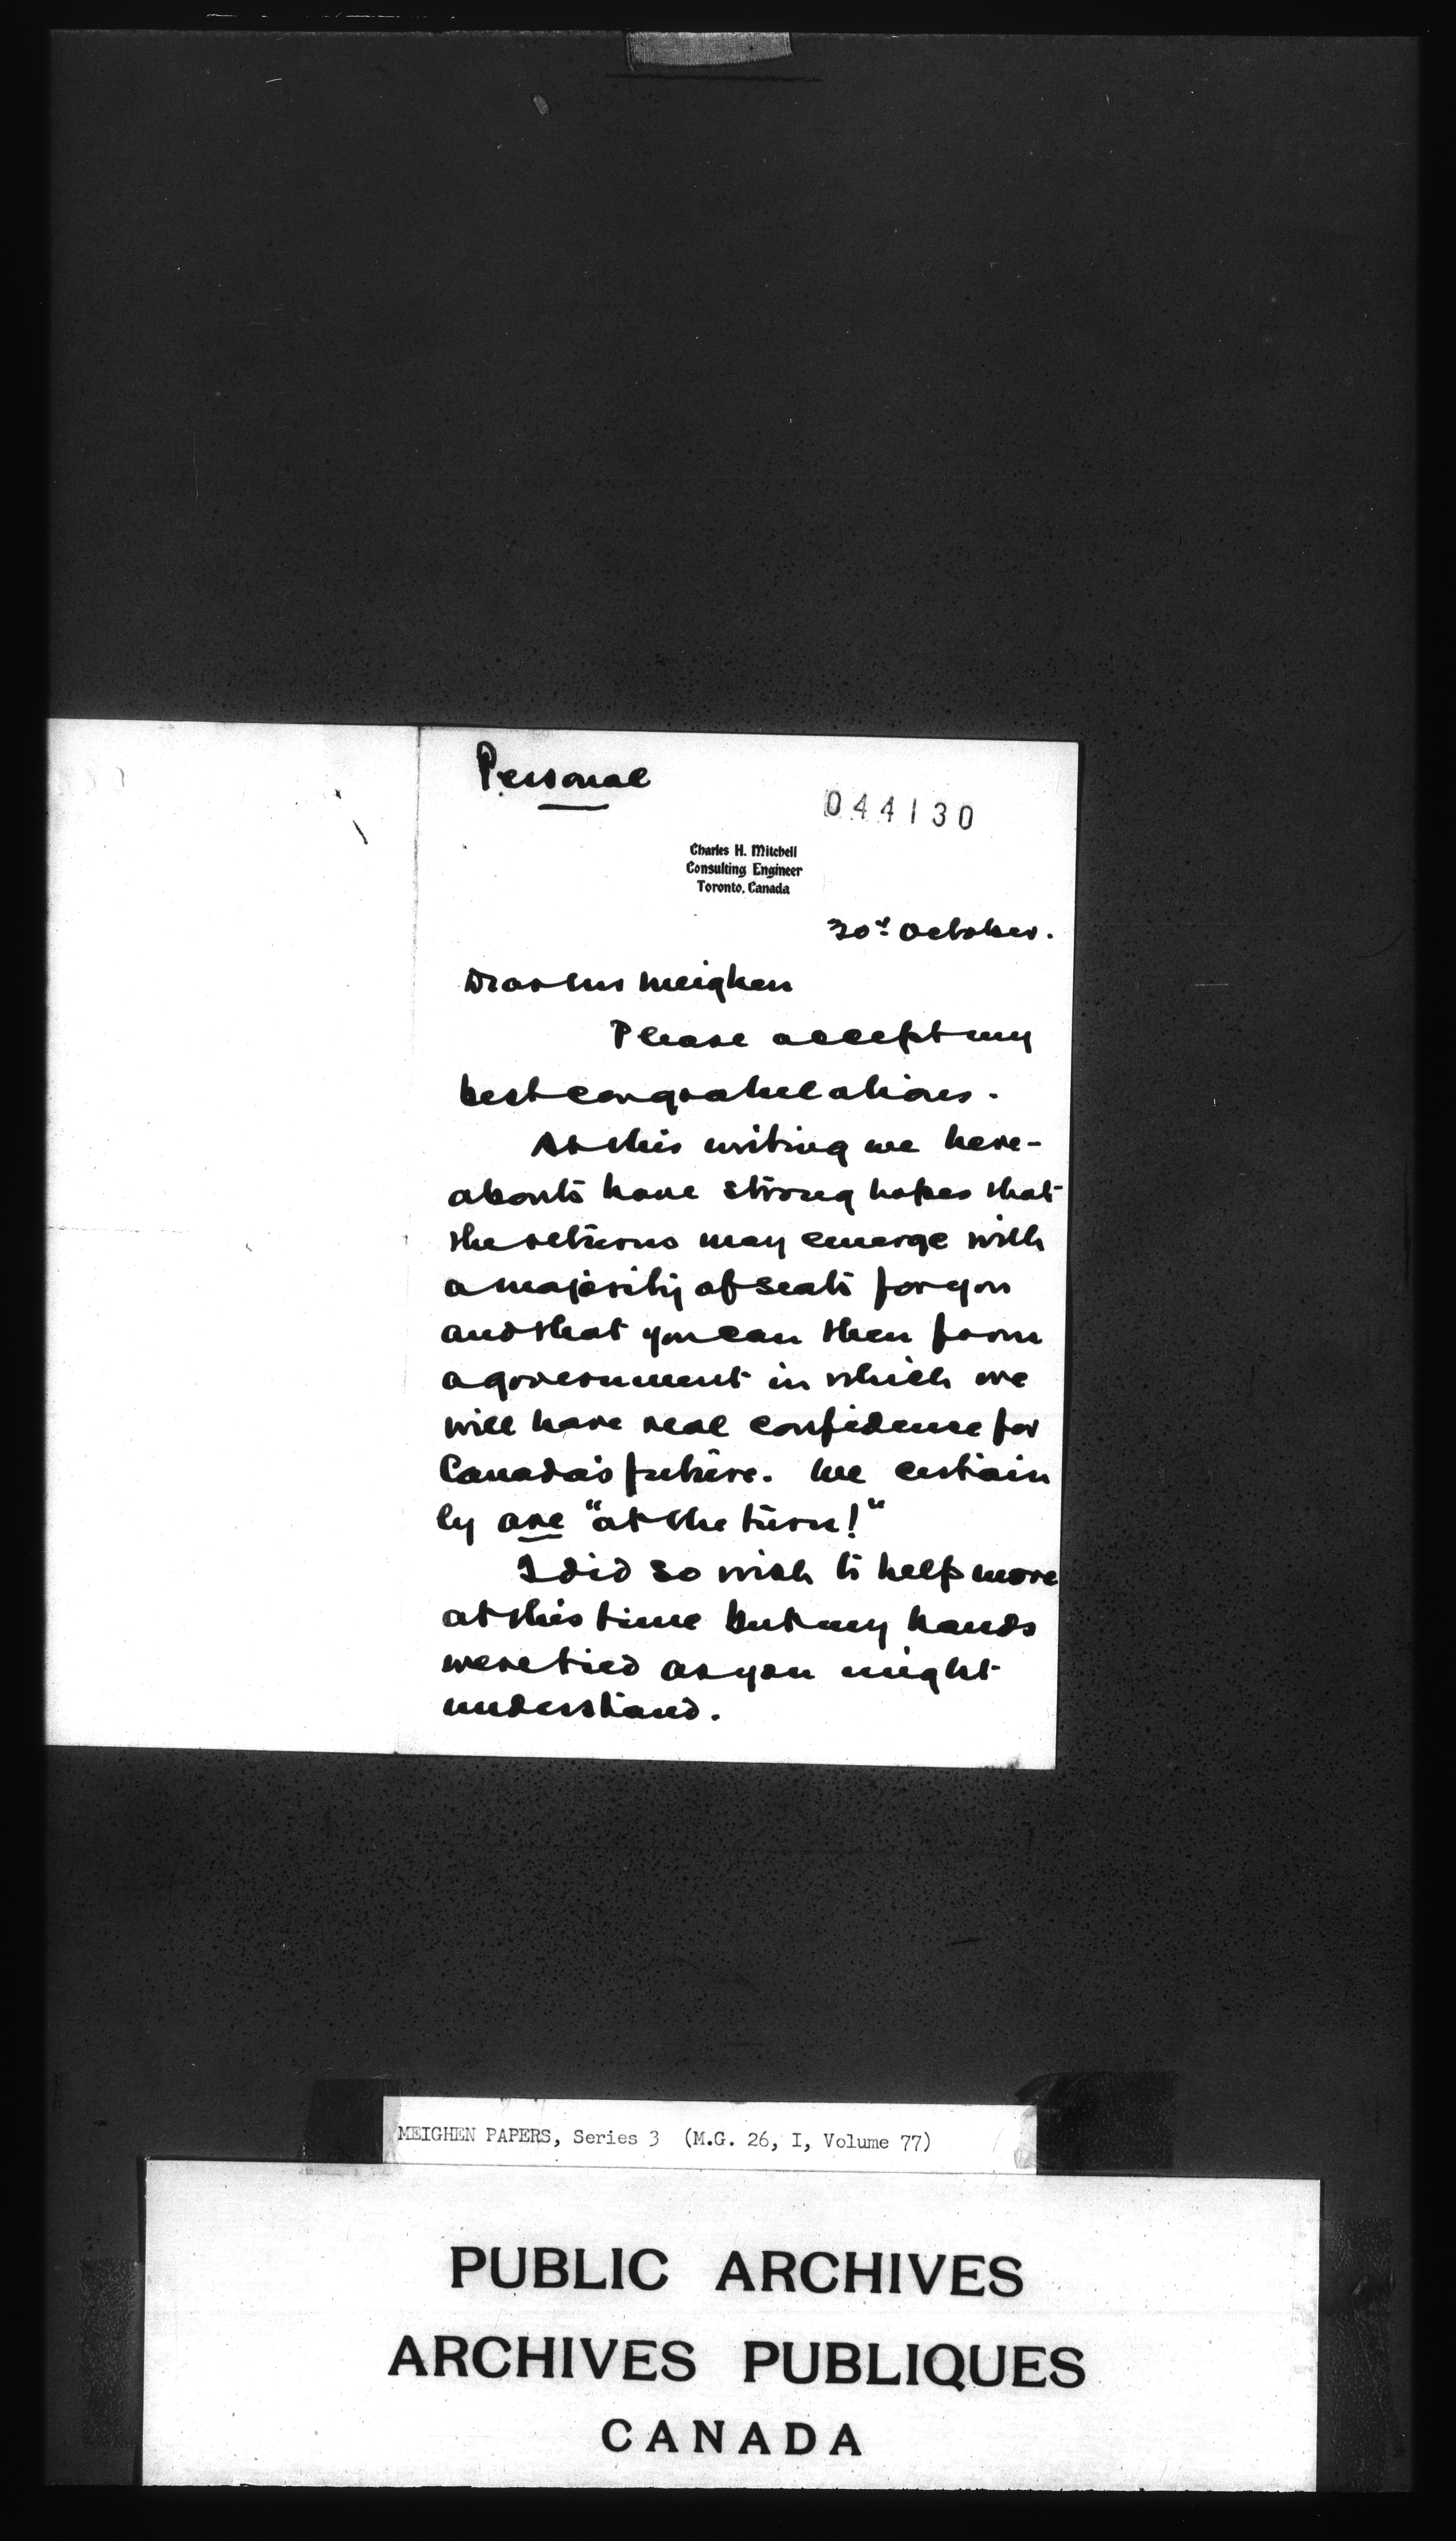 Personal
044130
Charles H. Mitchell
Consulting Engineer
Toronto, Canada
30th October.
Dear Mr Meighen
Please accept my
best congratulations.
At this writing we here-
abouts have strong hopes that
the returns may emerge with
a majority of seats for you
and that you can then form
a government in which we
will have real confidence for
Canada's future. We certain
ly are "at the turn!"
I did so wish to help more
at this time but my hands
were tied as you might
understand.
MEIGHEN PAPERS, Series 3 (M.G. 26, I, Volume 77)
PUBLIC ARCHIVES
ARCHIVES PUBLIQUES
CANADA